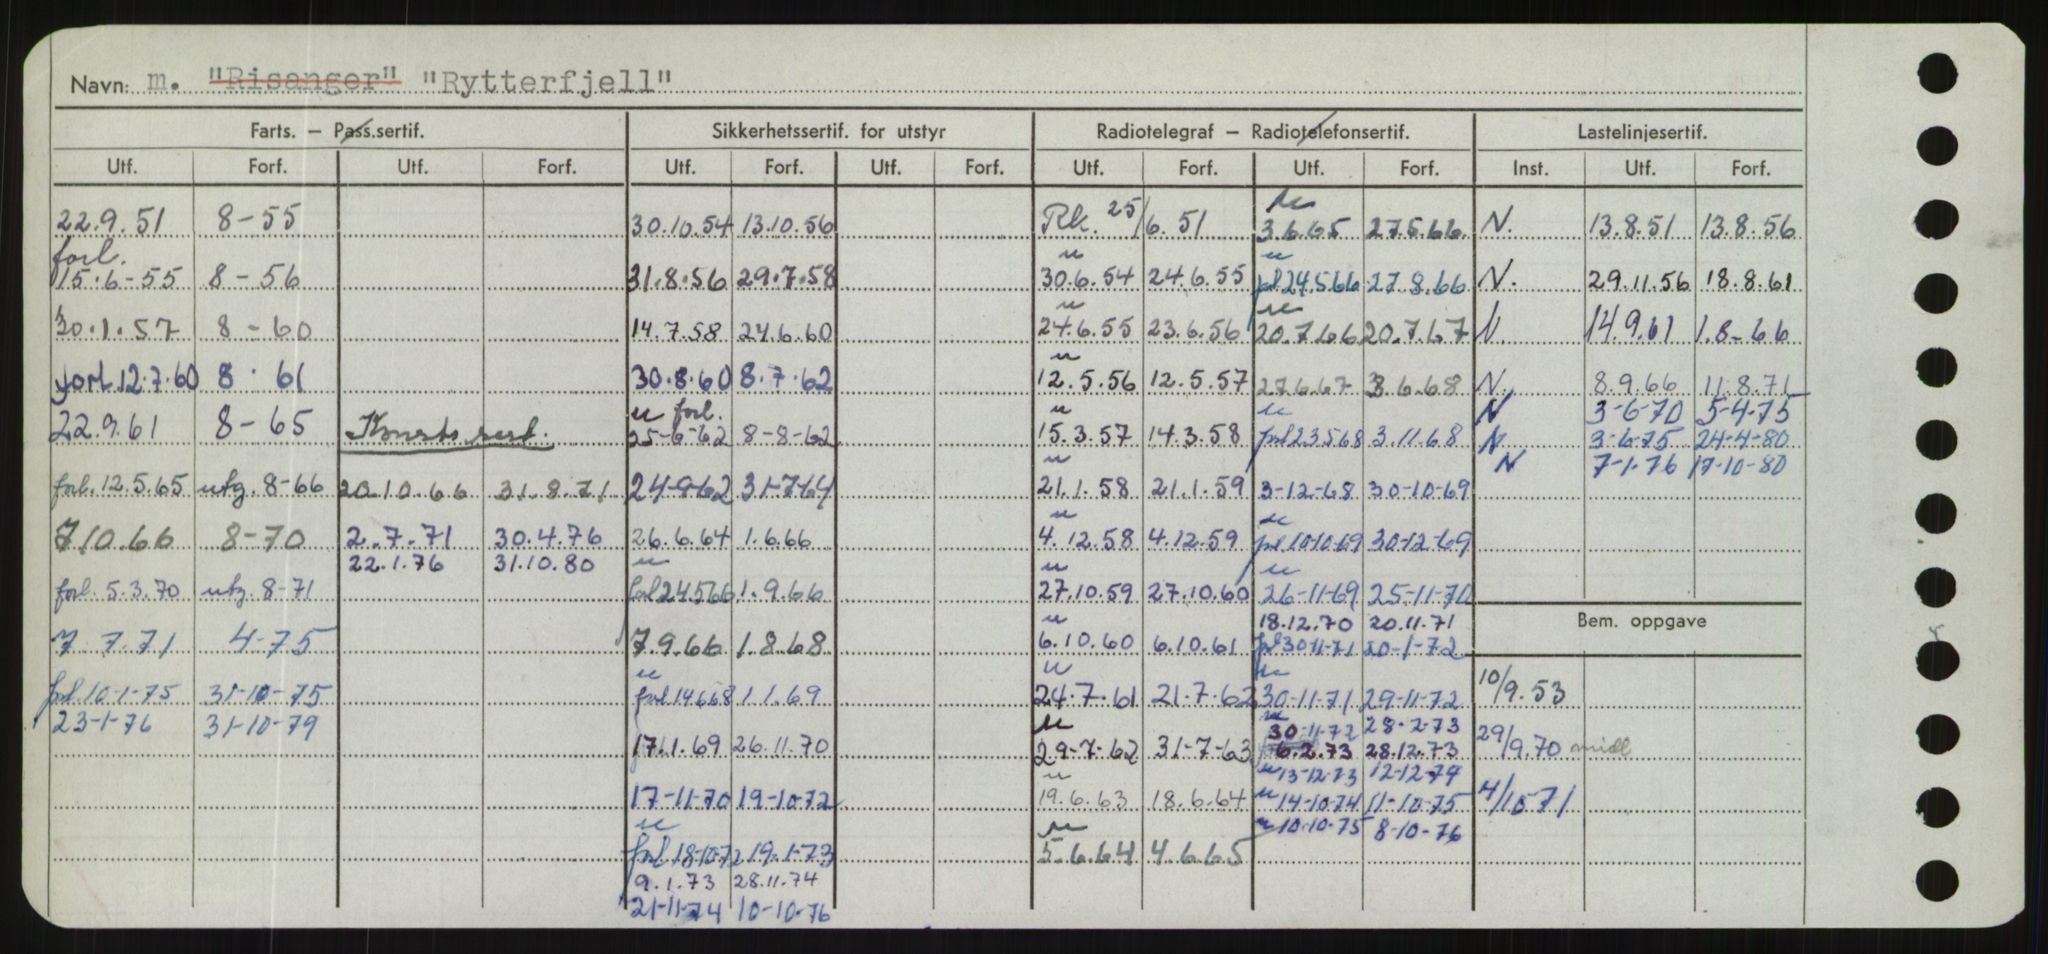 Navn: m. "Risanger" "Rytterfjell"
Farts. — Pass.sertif. Sikkerhetssertif. for utstyr Radiotelegraf — Radiotelefonsertif. Lastelinjesertif.
Utf. Forf. Utf. Forf. Utf. Forf. Utf. Forf. Utf. Forf. Utf. Forf. Inst. Utf. Forf.
22.9.51 8-55 30.10.54 13.10.56 Rk. 25/6.51 3.6.65 27.5.66 N. 13.8.51 13.8.56
forl.
15.6-55 8-56 31.8.56 29.7.58 30.6.54 24.6.55 forl 24.5.66 27.8.66 N. 29.11.56 18.8.61
30.1.57 8-60 14.7.58 24.6.60 24.6.55 23.6.56 20.7.66 20.7.67 N. 14.9.61 1.8-66
forl. 12.7.60 8. 61 30.8.60 8.7.62 12.5.56 12.5.57 27.6.67 3.6.68 N. 8.9.66 11.8.71
N 3-6-70 5-4-75
forl.
22.9.61 8-65 25-6-62 8-8-62 15.3.57 14.3.58 forl 23568 3.11.68 N. 3-6-75 24-4-80
N 7-1-76 17-10-80
forl. 12.5.65 utg. 8-66 20.10.66 31.8.71 24-8-62 31-7-64 21.1.58 21.1.59 3-12-68 30-10-69
7.10.66 8-70 2.7.71 30.4.76 26.6.64 1.6.66 4.12.58 4.12.59 forl 10-10-69 30-12-69
22.1.76 31.10.80
forl. 5.3.70 utg. 8-71 forl 24566 1.9.66 27.10.59 27.10.60 26-11-69 25-11-70
18.12.70 20.11.71 Bem. oppgave
7.7.71 4-75 7.9.66 1.8.68 6.10.60 6.10.61 forl 30-11-71 20-1-72
forl. 10-1-75 31-10-75 forl 14668 1.1.69 24.7.61 21.7.62 30-11-71 29-11-72 10/9.53
23-1-76 31-10-79 30-11-72 28.2-73
17.1.69 26.11.70 29-7-62 31-7-63 6.2.73 28.12.73 29/9.70 midl
13-12-73 12-12-74
17-11-70 19-10-72 19.6.63 18.6.64 14-10-74 11-10-75 4/10 71
10-10-75 8-10-76
forl 18-10-72 19.1-73 5.6.64 4.6.65
9.1.73 28.11.74
21-11-74 10-10-76